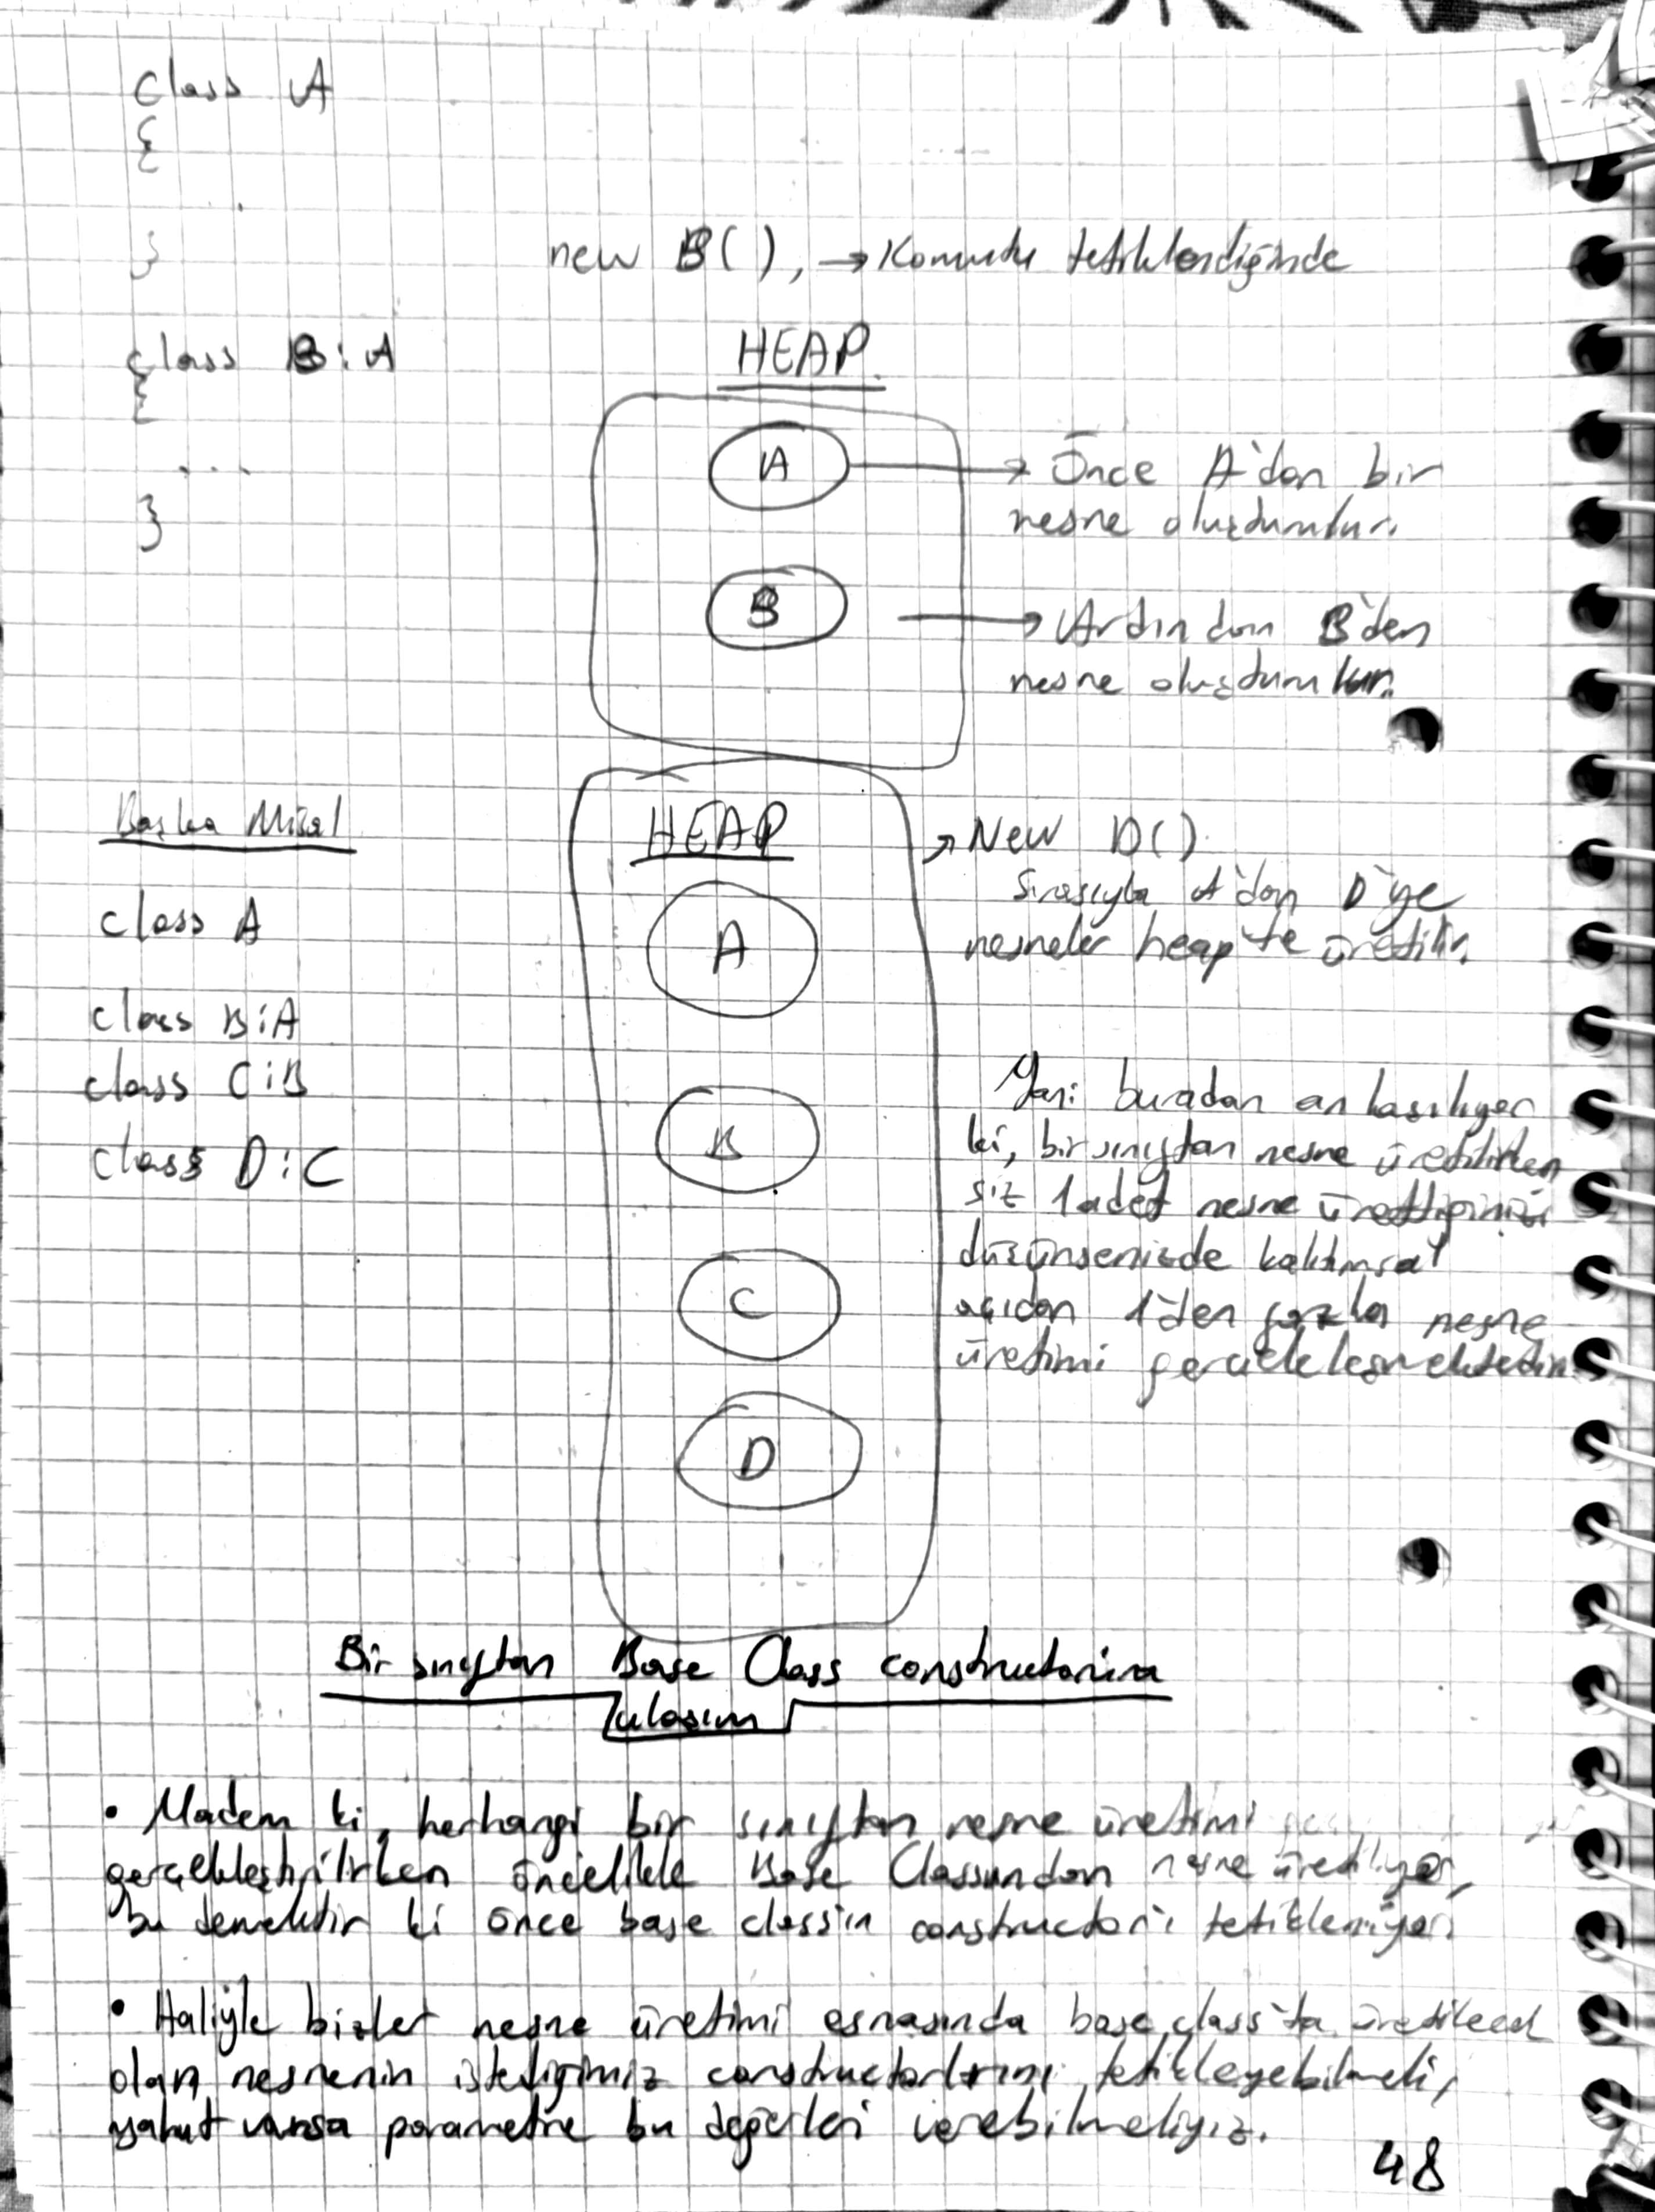 class A
{
}
new B(), → Komutu tetiklendiğinde
class B : A
{
...
}
HEAP
A
→ Önce A'dan bir
nesne oluşdurulur.
B
→ Ardından B'den
nesne oluşdurulur.
Başka Misal
class A
class B : A
class C : B
class D : C
HEAP
A
B
C
D
→ New D()
Sırasıyla A'dan D'ye
nesneler heap'te üretilir.
Yani buradan anlaşılıyor
ki, bir sınıftan nesne üretilirken
siz 1 adet nesne ürettiğinizi
düşünsenizde kalıtımsal
açıdan 1'den fazla nesne
üretimi gerçekleşmektedir.
Bir sınıftan Base Class constructorına
ulaşım
• Madem ki, herhangi bir sınıftan nesne üretimi
gerçekleştirilirken öncelikle Base Classından nesne üretiliyor,
bu demektir ki önce base class'ın constructor'ı tetikleniyor.
• Haliyle bizler nesne üretimi esnasında base class'ta üretilecek
olan nesnenin istediğimiz constructorlarını tetikleyebilmeli,
yahut varsa parametre bu değerleri verebilmeliyiz.
48